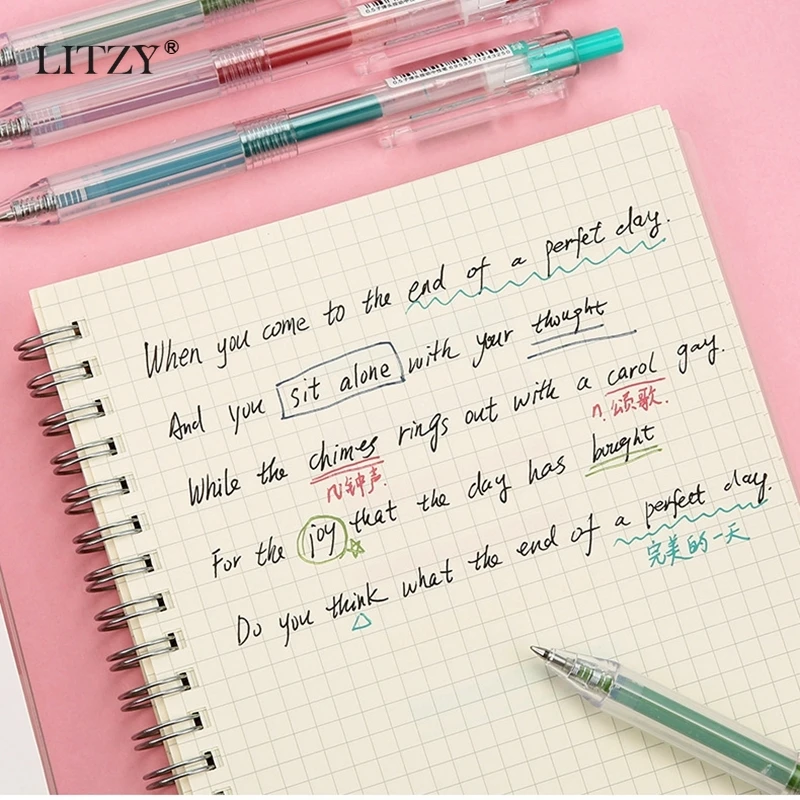 LITZY®
When you come to the end of a perfet day.
And you sit alone with your thought
While the chimes rings out with a carol gay.
n.钟声. n.颂歌.
For the joy that the day has bought
Do you think what the end of a perfect day.
完美的一天